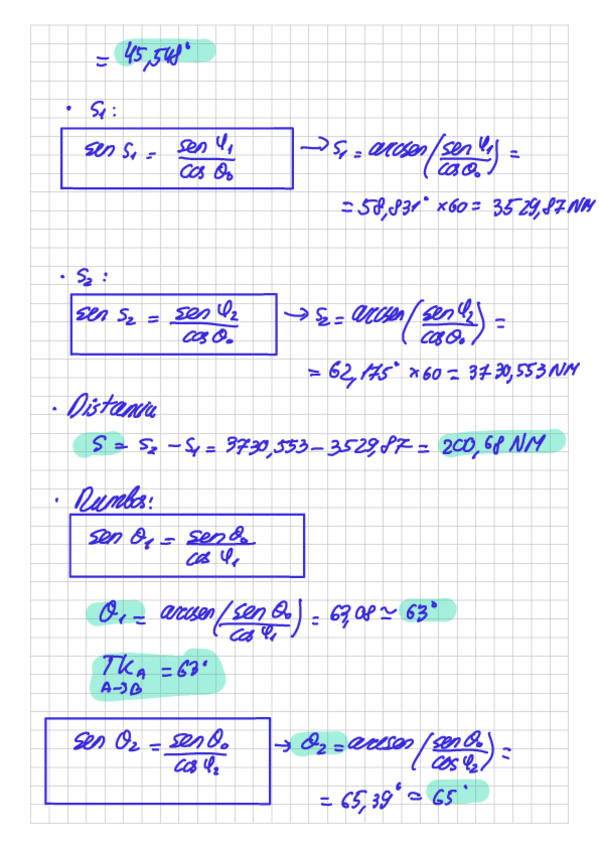 = 45,548°
· S₁:
sen S₁ = sen φ₁ / cos θ₀ → S₁ = arcsen (sen φ₁ / cos θ₀) =
= 58,831° × 60 = 3529,87 NM
· S₂:
sen S₂ = sen φ₂ / cos θ₀ → S₂ = arcsen (sen φ₂ / cos θ₀) =
= 62,175° × 60 = 3730,553 NM
· Distancia
S = S₂ - S₁ = 3730,553 - 3529,87 = 200,68 NM
· Rumbos:
sen θ₁ = sen θ₀ / cos φ₁
θ₁ = arcsen (sen θ₀ / cos φ₁) = 63,08 ≃ 63°
TK_A = 63°
A→B
sen θ₂ = sen θ₀ / cos φ₂ → θ₂ = arcsen (sen θ₀ / cos φ₂) =
= 65,39° ≃ 65°